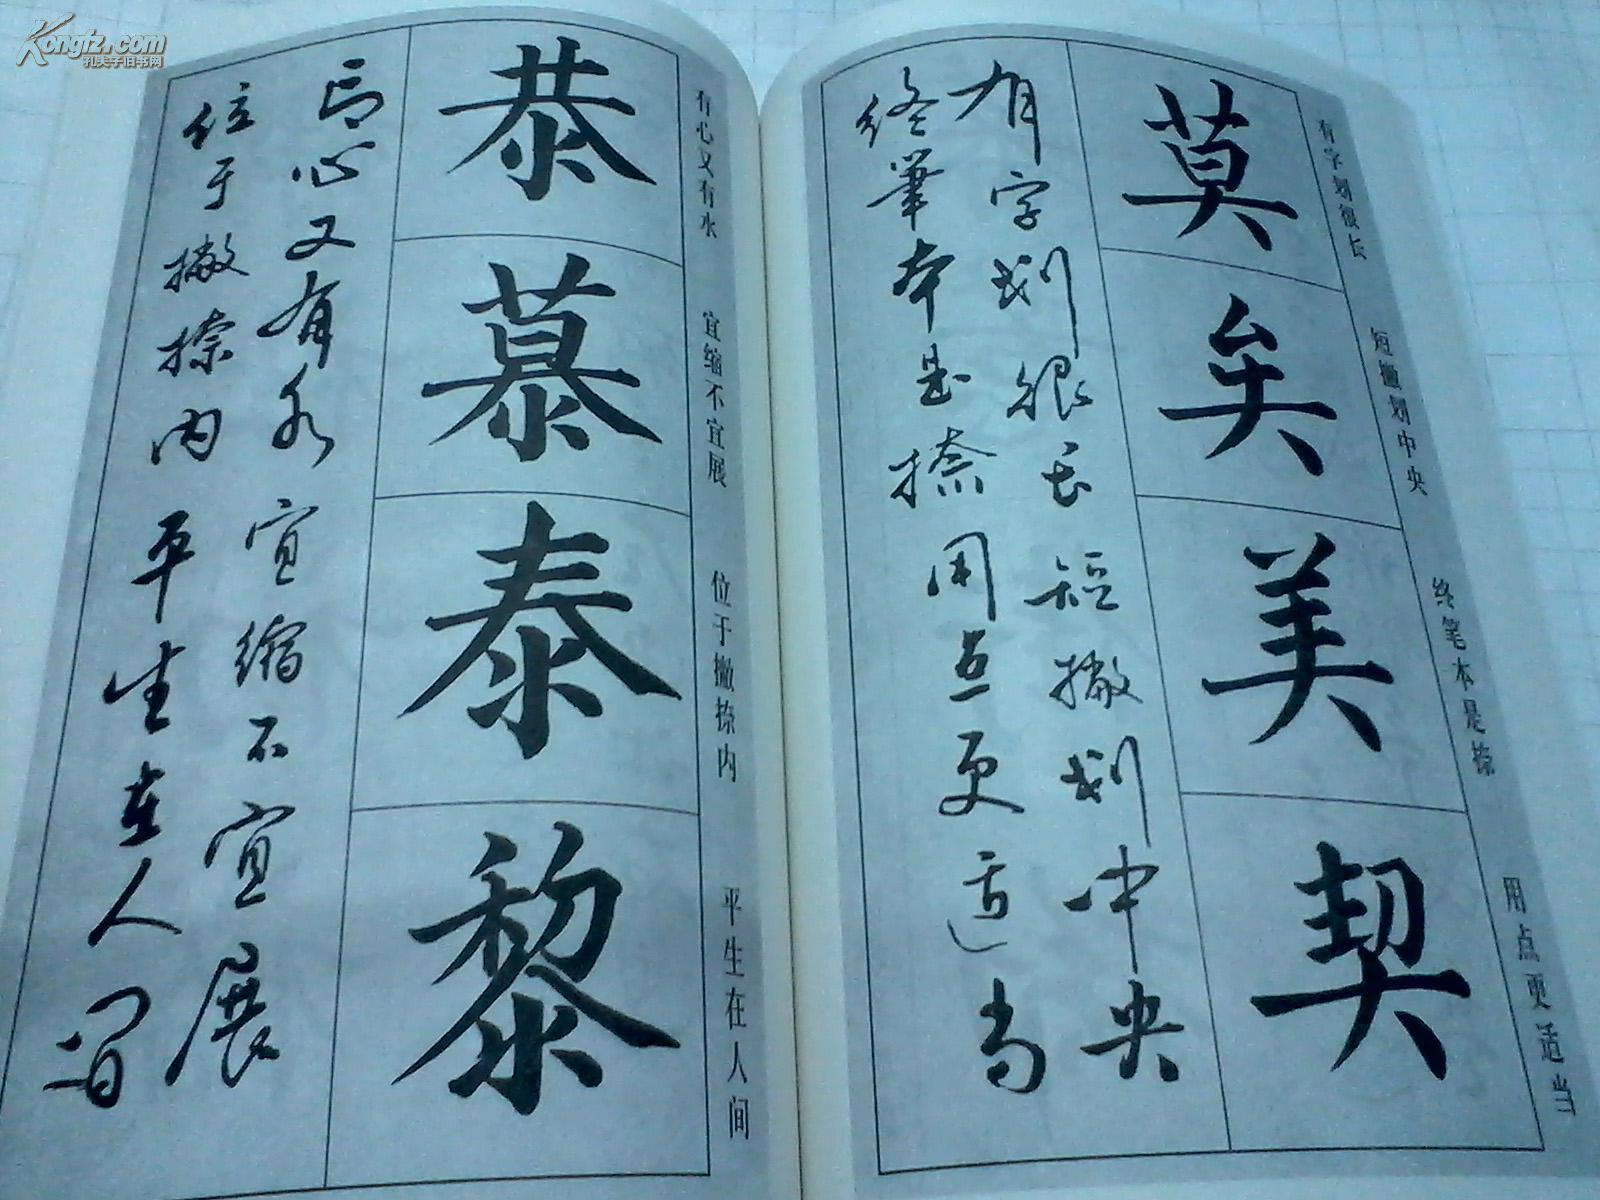 Kongfz.com
孔夫子旧书网
有字划很长 短撇划中央 终笔本是捺 用点更适当
莫
矣
美
契
有字划很长短撇划中央
终筆本是捺用点更适当
有心又有水 宜缩不宜展 位于撇捺内 平生在人间
恭
慕
泰
黎
有心又有水宜缩不宜展
位于撇捺内平生在人间